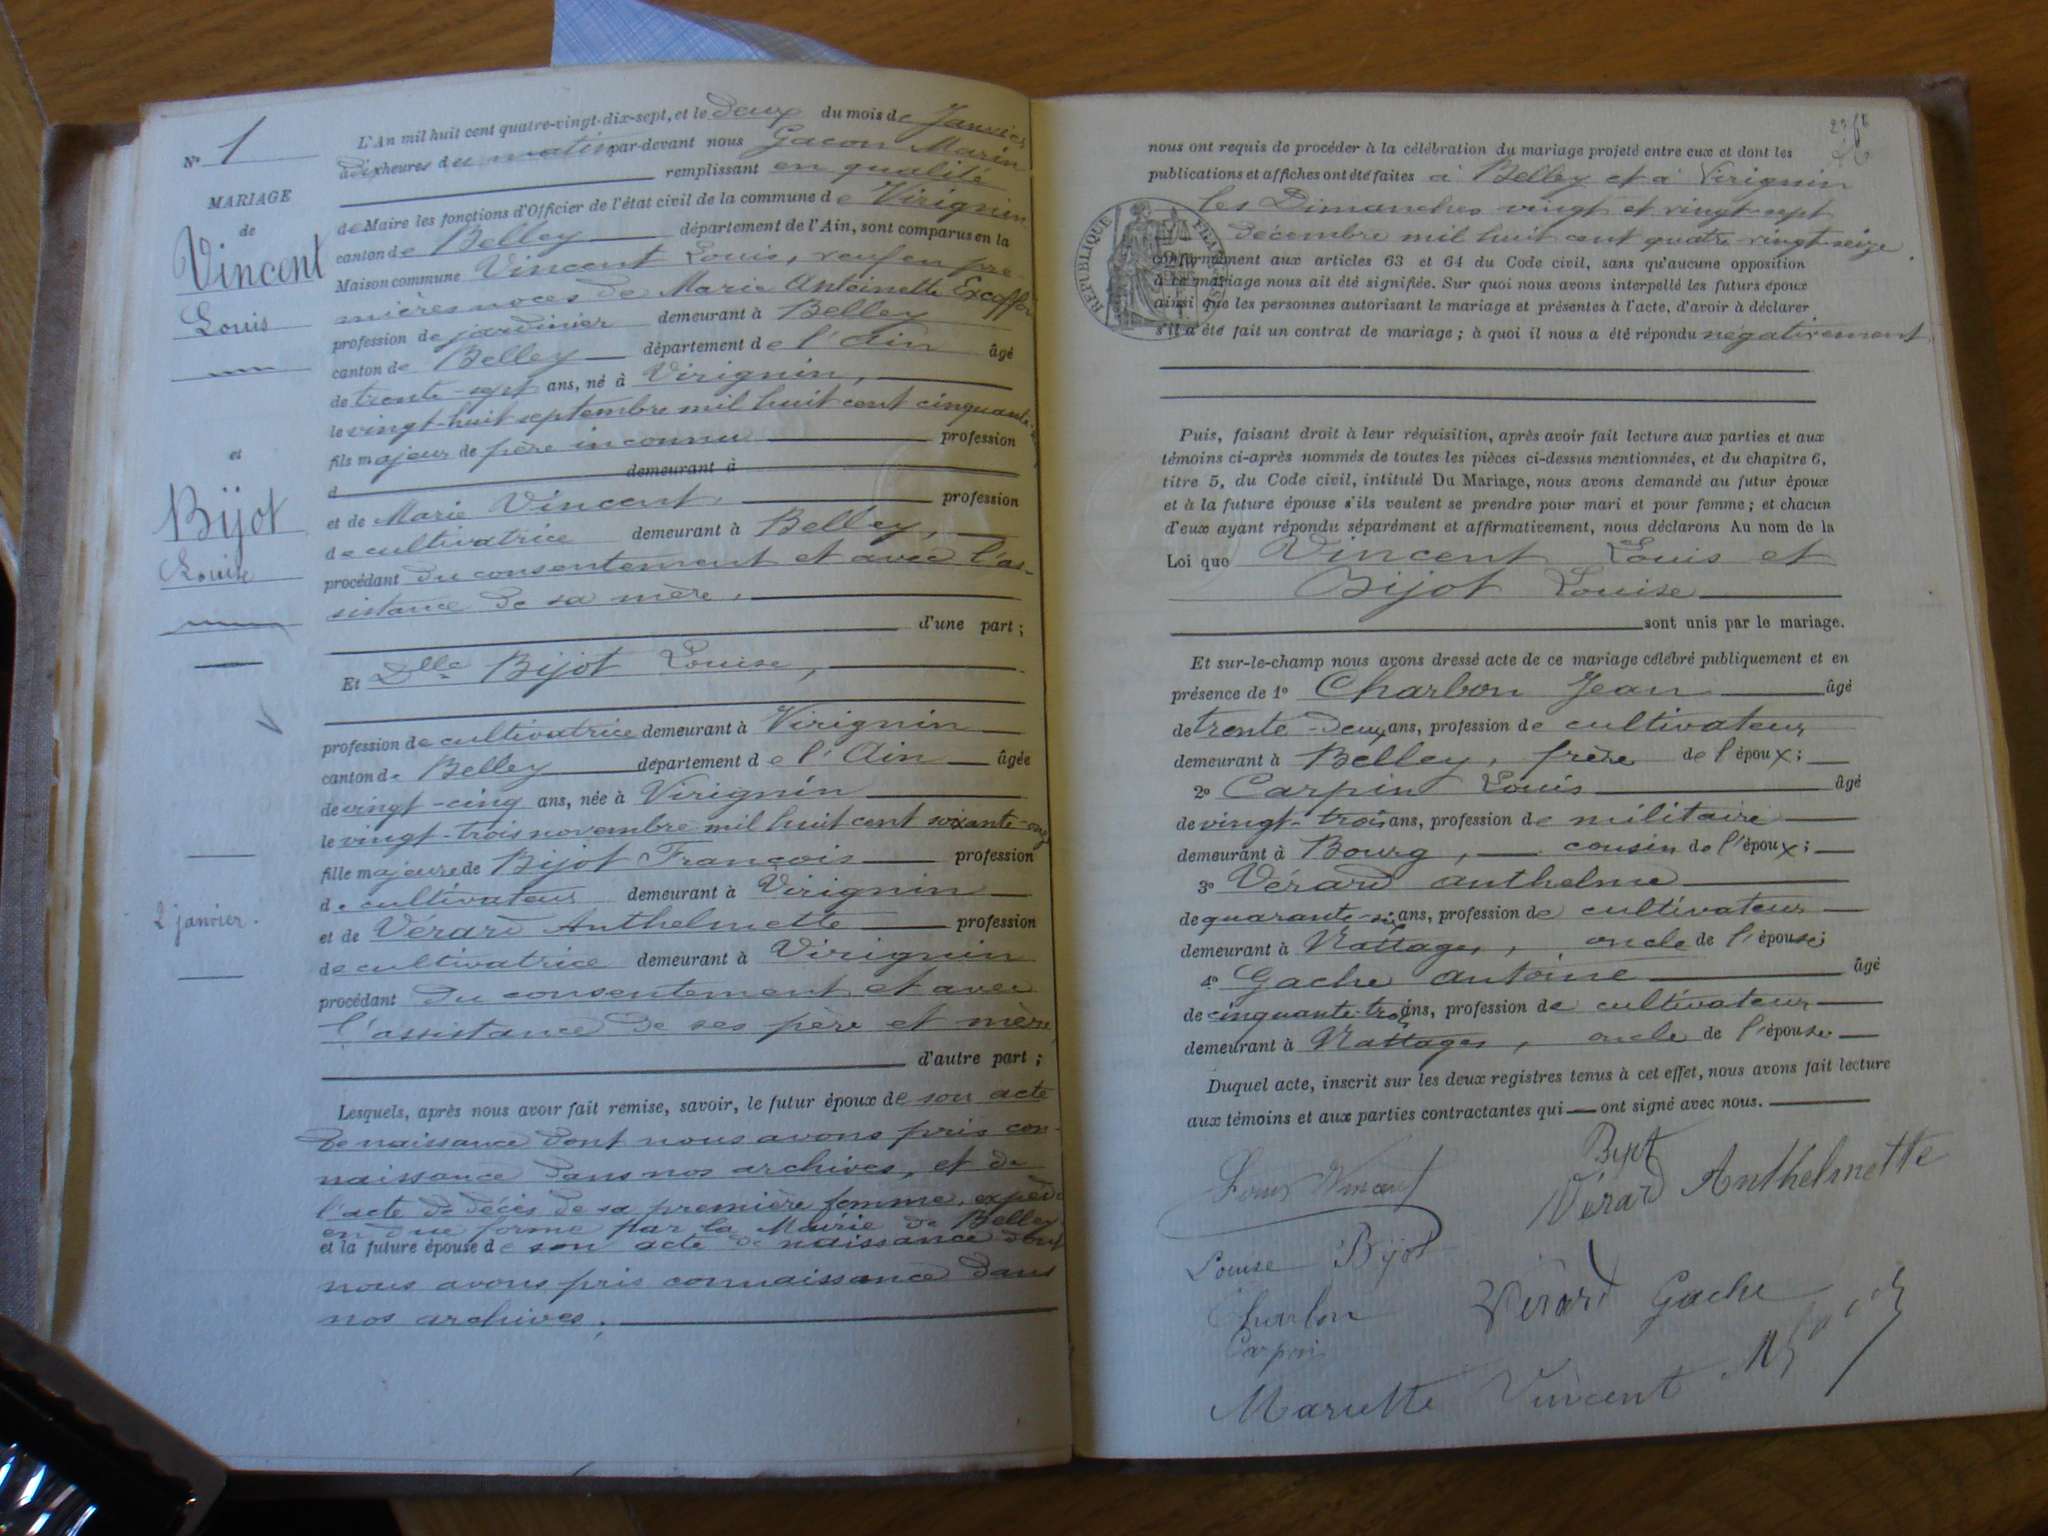 Nº 1
MARIAGE
de
Vincent
Louis
et
Bijot
Louise
2 janvier.
L'An mil huit cent quatre-vingt-dix-sept, et le deux du mois de Janvier
à dix heures du matin par-devant nous Gacon Marin
remplissant en qualité
de Maire les fonctions d'Officier de l'état civil de la commune de Virignin
canton de Belley département de l'Ain, sont comparus en la
Maison commune Vincent Louis, veuf en pre-
mières noces de Marie Antoinette Excoffon
profession de jardinier demeurant à Belley
canton de Belley département de l'Ain âgé
de trente-sept ans, né à Virignin,
le vingt-huit septembre mil huit cent cinquante-
fils majeur de père inconnu profession
d demeurant à
et de Marie Vincent, profession
de cultivatrice demeurant à Belley,
procédant du consentement et avec l'as-
sistance de sa mère,
d'une part;
Et Dlle Bijot Louise,
profession de cultivatrice demeurant à Virignin
canton de Belley département de l'Ain âgée
de vingt-cinq ans, née à Virignin
le vingt-trois novembre mil huit cent soixante-onze
fille majeure de Bijot François profession
de cultivateur demeurant à Virignin
et de Vérard Anthelmette profession
de cultivatrice demeurant à Virignin
procédant du consentement et avec
l'assistance de ses père et mère
d'autre part;
Lesquels, après nous avoir fait remise, savoir, le futur époux de son acte
de naissance dont nous avons pris con-
naissance dans nos archives, et de
l'acte de décès de sa première femme, expédié
en due forme par la Mairie de Belley
et la future épouse de son acte de naissance dont
nous avons pris connaissance dans
nos archives;
nous ont requis de procéder à la célébration du mariage projeté entre eux et dont les
publications et affiches ont été faites à Belley et à Virignin
les Dimanches vingt et vingt-sept
décembre mil huit cent quatre-vingt-seize
conformément aux articles 63 et 64 du Code civil, sans qu'aucune opposition
à ce mariage nous ait été signifiée. Sur quoi nous avons interpellé les futurs époux
ainsi que les personnes autorisant le mariage et présentes à l'acte, d'avoir à déclarer
s'il a été fait un contrat de mariage; à quoi il nous a été répondu négativement
RÉPUBLIQUE FRANÇAISE
Puis, faisant droit à leur réquisition, après avoir fait lecture aux parties et aux
témoins ci-après nommés de toutes les pièces ci-dessus mentionnées, et du chapitre 6,
titre 5, du Code civil, intitulé Du Mariage, nous avons demandé au futur époux
et à la future épouse s'ils veulent se prendre pour mari et pour femme; et chacun
d'eux ayant répondu séparément et affirmativement, nous déclarons Au nom de la
Loi que Vincent Louis et
Bijot Louise
sont unis par le mariage.
Et sur-le-champ nous avons dressé acte de ce mariage célébré publiquement et en
présence de 1º Charbon Jean âgé
de trente-deux ans, profession de cultivateur
demeurant à Belley, frère de l'époux;
2º Carpin Louis âgé
de vingt-trois ans, profession de militaire
demeurant à Bourg, cousin de l'époux;
3º Vérard Anthelme
de quarante-six ans, profession de cultivateur
demeurant à Nattages, oncle de l'épouse;
4º Gache Antoine âgé
de cinquante-trois ans, profession de cultivateur
demeurant à Nattages, oncle de l'épouse
Duquel acte, inscrit sur les deux registres tenus à cet effet, nous avons fait lecture
aux témoins et aux parties contractantes qui ont signé avec nous.
Louis Vincent Bijot
Vérard Anthelmette
Louise Bijot
Charbon Vérard Gache
Carpin
Mariette Vincent